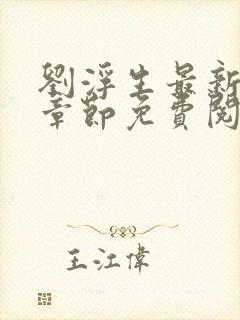 劉浮生最新
章節免費閱
王江偉